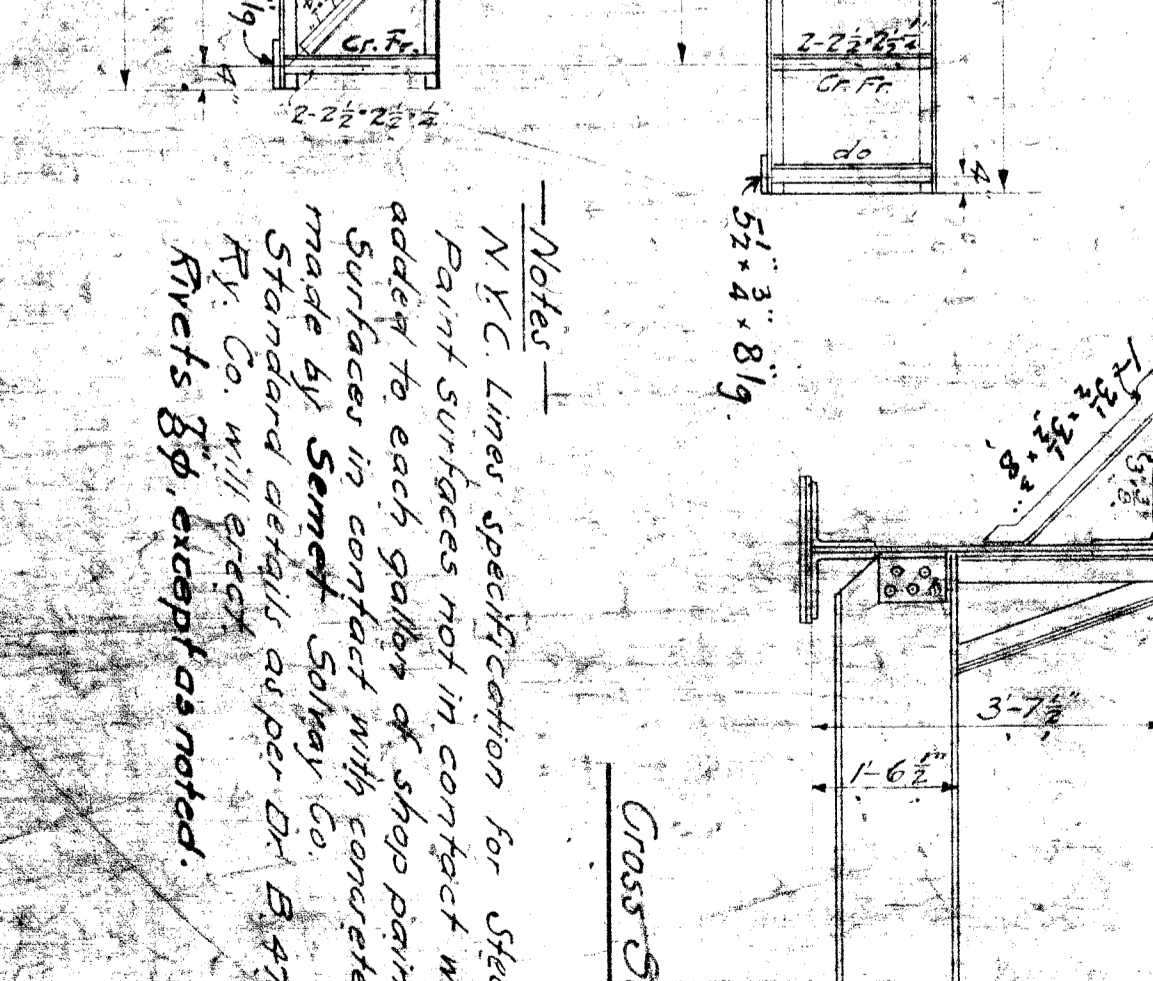 Cr. Fr.
4"
2-2½×2½×¼
2-2½×2½×¼
Cr. Fr.
do
4"
5½" × ¾" × 8" lg.
— Notes —
N.Y.C. Lines specification for
Paint surfaces not in contact
added to each gallon of shop
Surfaces in contact with concrete
made by Semet Solvay Co.
Standard details as per Dr. B
Ry. Co. will erect
Rivets ⅞"φ, except as noted.
3½ × 3½ × ⅜
3'-7½"
1'-6½"
Cross